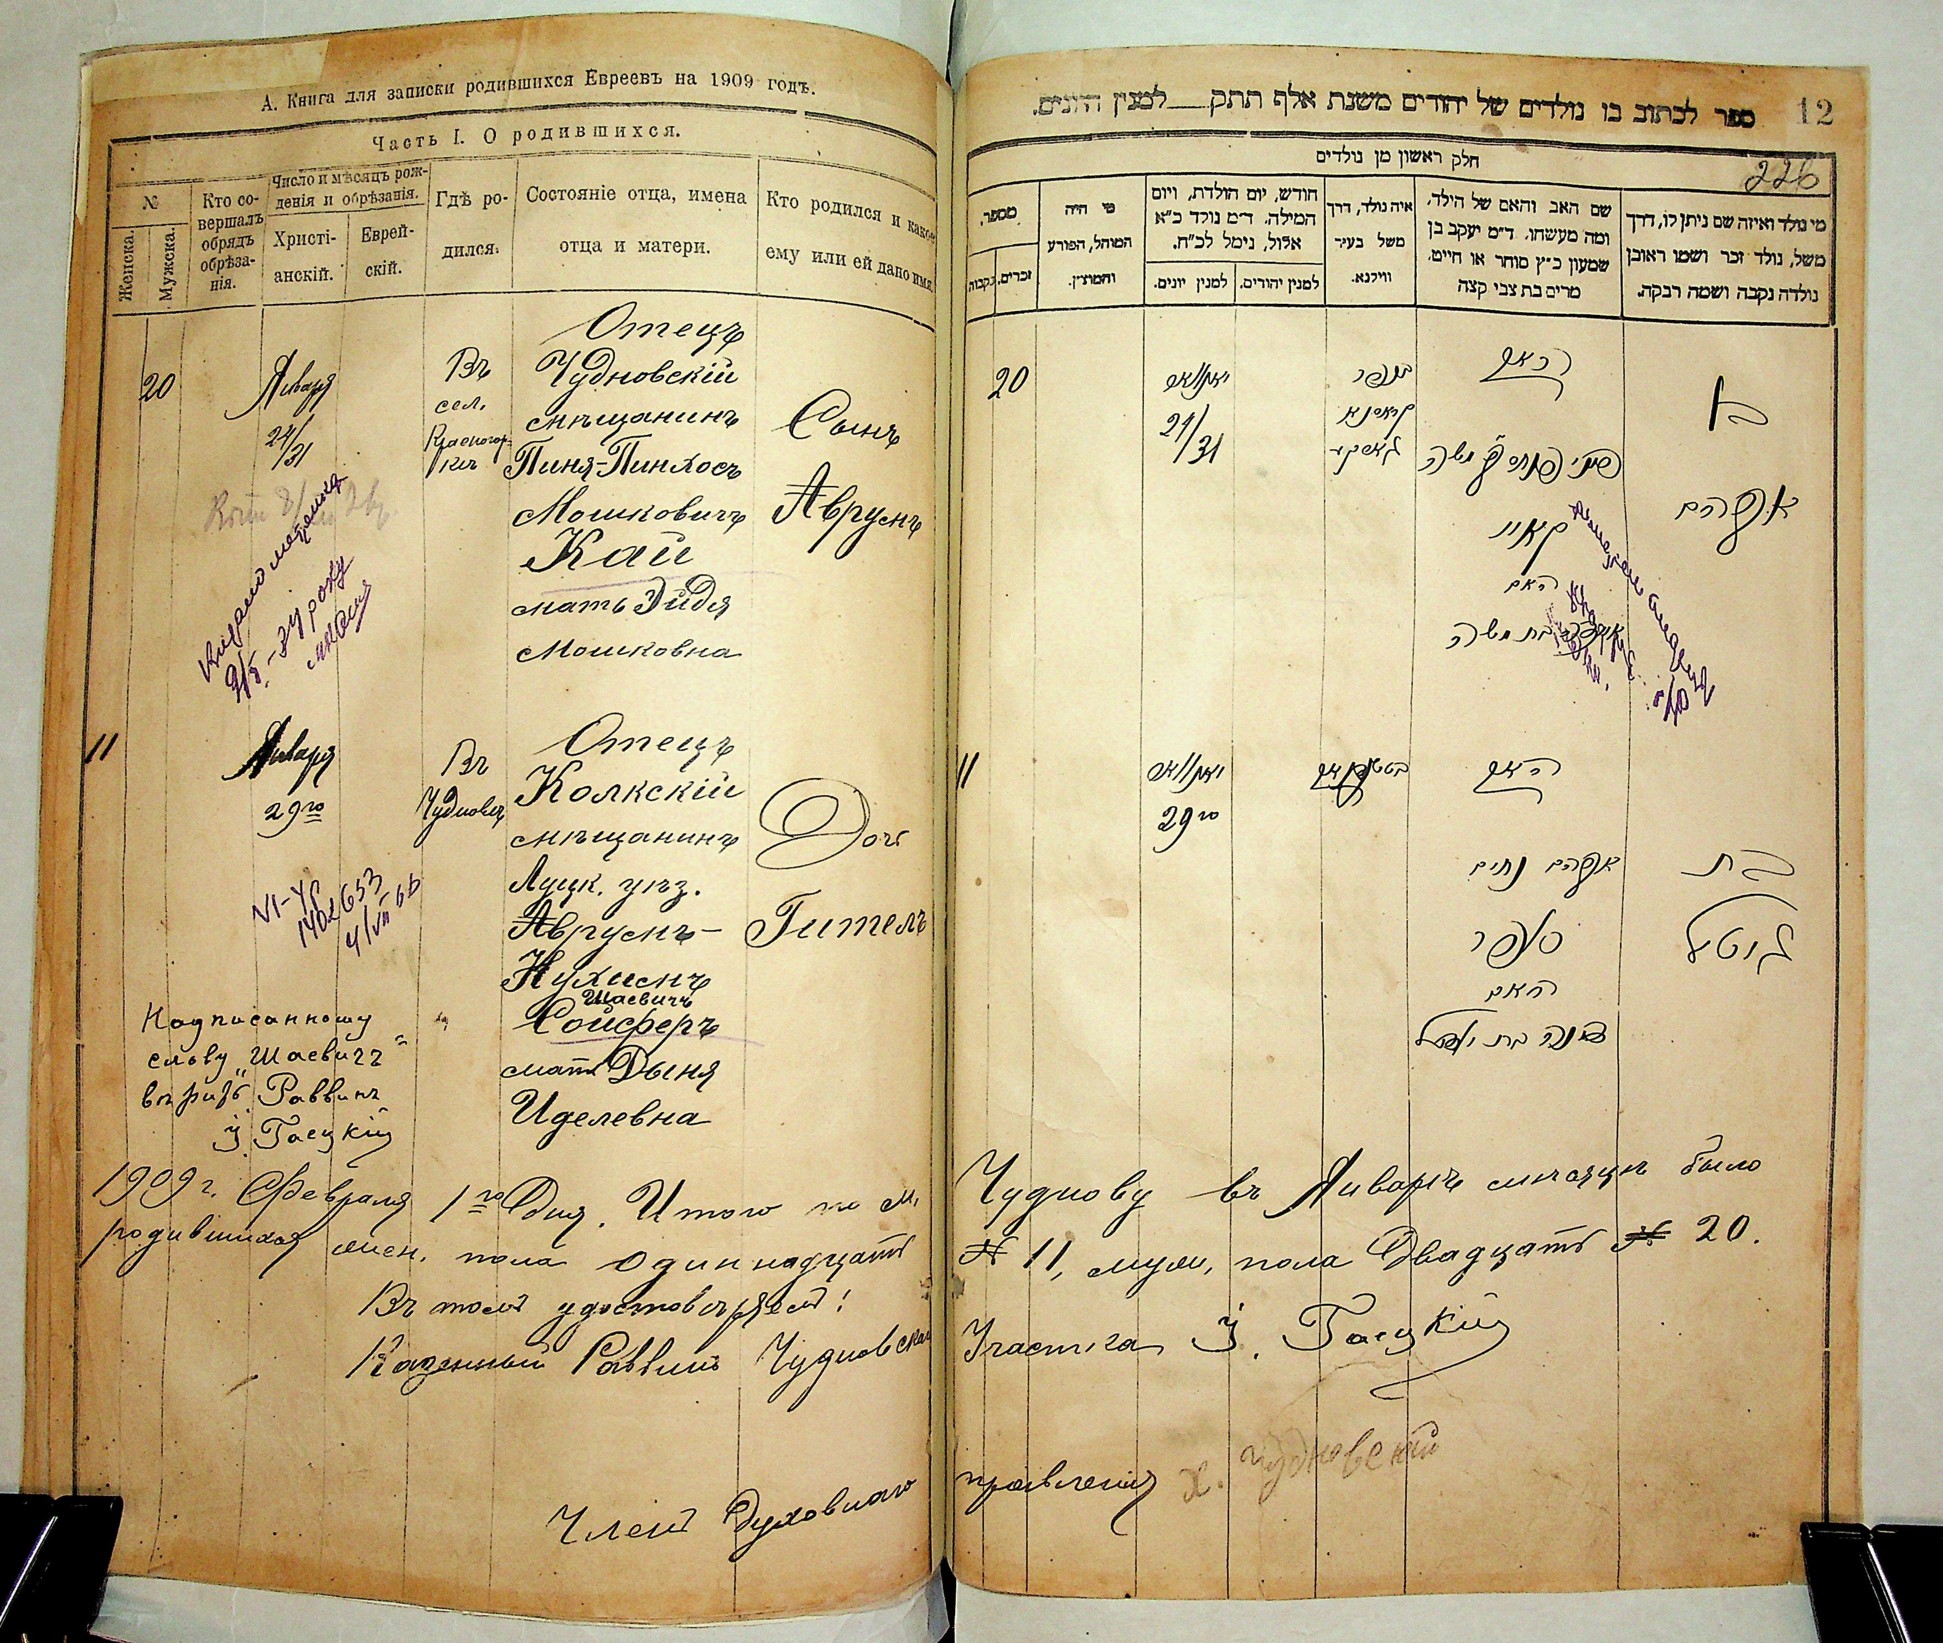 А. Книга для записки родившихся Евреевъ на 1909 годъ.
Часть I. О родившихся.
№
Женска.
Мужска.
Кто со-
вершалъ
обрядъ
обрѣза-
нія.
Число и мѣсяцъ рож-
денія и обрѣзанія.
Христі-
анскій.
Еврей-
скій.
Гдѣ ро-
дился.
Состояніе отца, имена
отца и матери.
Кто родился и какое
ему или ей дано имя.
20
Января
24/31
Въ
сел.
Отецъ
Чудновскій
мѣщанинъ
Пиня-Пинхосъ
Мошковичъ
Кай
мать Эйдя
Мошковна
Сынъ
Аврумъ
Видано метрику
9/5
11
Января
29го
Въ
Чудновѣ
Отецъ
Колкскій
мѣщанинъ
Луцк. уѣз.
Аврумъ-
Нухимъ
Шаевичъ
Сойферъ
мать Дыня
Иделевна
Дочь
Гитель
VI-УР
1402653
4/VII 66
Надписанному
слову „Шаевичъ"
вѣрить Раввинъ
І. Гасцкій
1909 г. Февраля 1го Дня. Итого по м.
родившихся жен. пола одиннадцать
Въ томъ удостовѣряемъ:
Казенный Раввинъ Чудновскаго
Членъ Духовнаго
12
226
ספר לכתוב בו נולדים של יהודים משנת אלף תתק למנין היונים.
חלק ראשון מן נולדים
מספר.
זכרים.
נקבות
מי היה
המוהל, הפורע
והמוצץ.
חודש, יום הולדת, ויום
המילה. ד״מ נולד כ״א
אלול, נימל לכ״ח.
למנין יונים.
למנין יהודים.
איה נולד, דרך
משל בעיר
ווילנא.
שם האב והאם של הילד,
ומה מעשהו. ד״מ יעקב בן
שמעון כ״ץ סוחר או חייט,
מרים בת צבי קצה
מי נולד ואיזה שם ניתן לו, דרך
משל, נולד זכר ושמו ראובן
נולדה נקבה ושמה רבקה.
20
יאנוואר
24/31
בכפר
האב
פיני פנחס ב״ר משה
קאיי
האם
בת משה
בן
אברהם
11
יאנוואר
29го
האב
אברהם נחים
סופר
האם
דינה בת יודל
בת
גיטל
Чуднову въ Январѣ мѣсяцѣ было
№ 11, муж. пола Двадцать № 20.
Участка І. Гасцкій
правленія Х. Чудновскій